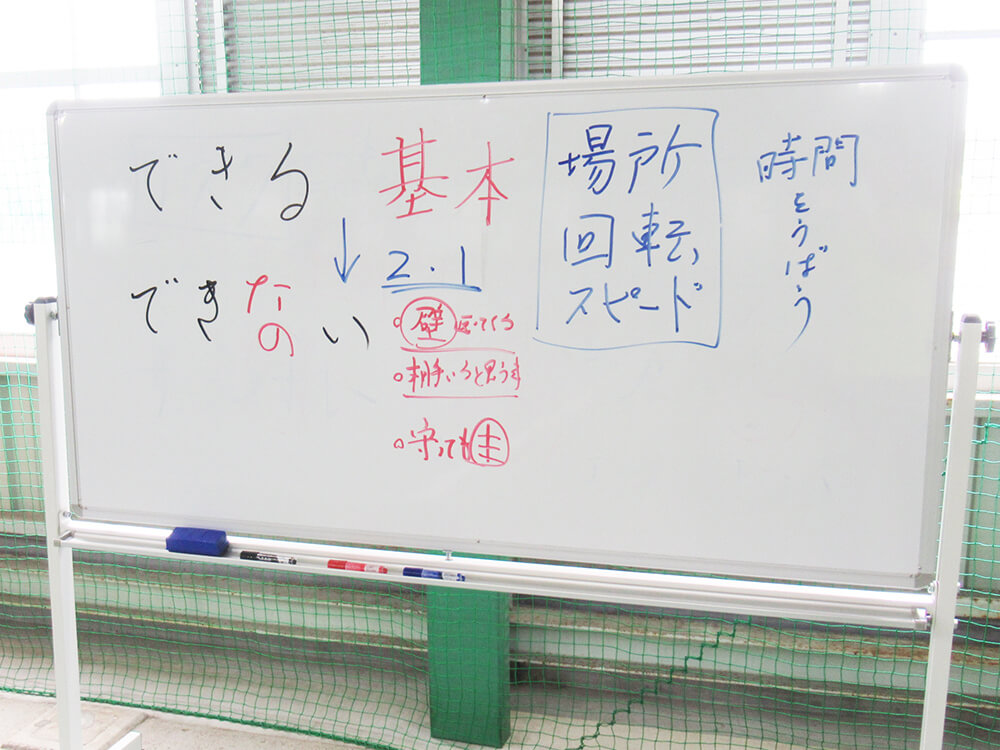 できる
できない
基本
↓
2.1
○壁返ってくる
○相手いると思う
○守っても
場所
回転
スピード
時間をうばう